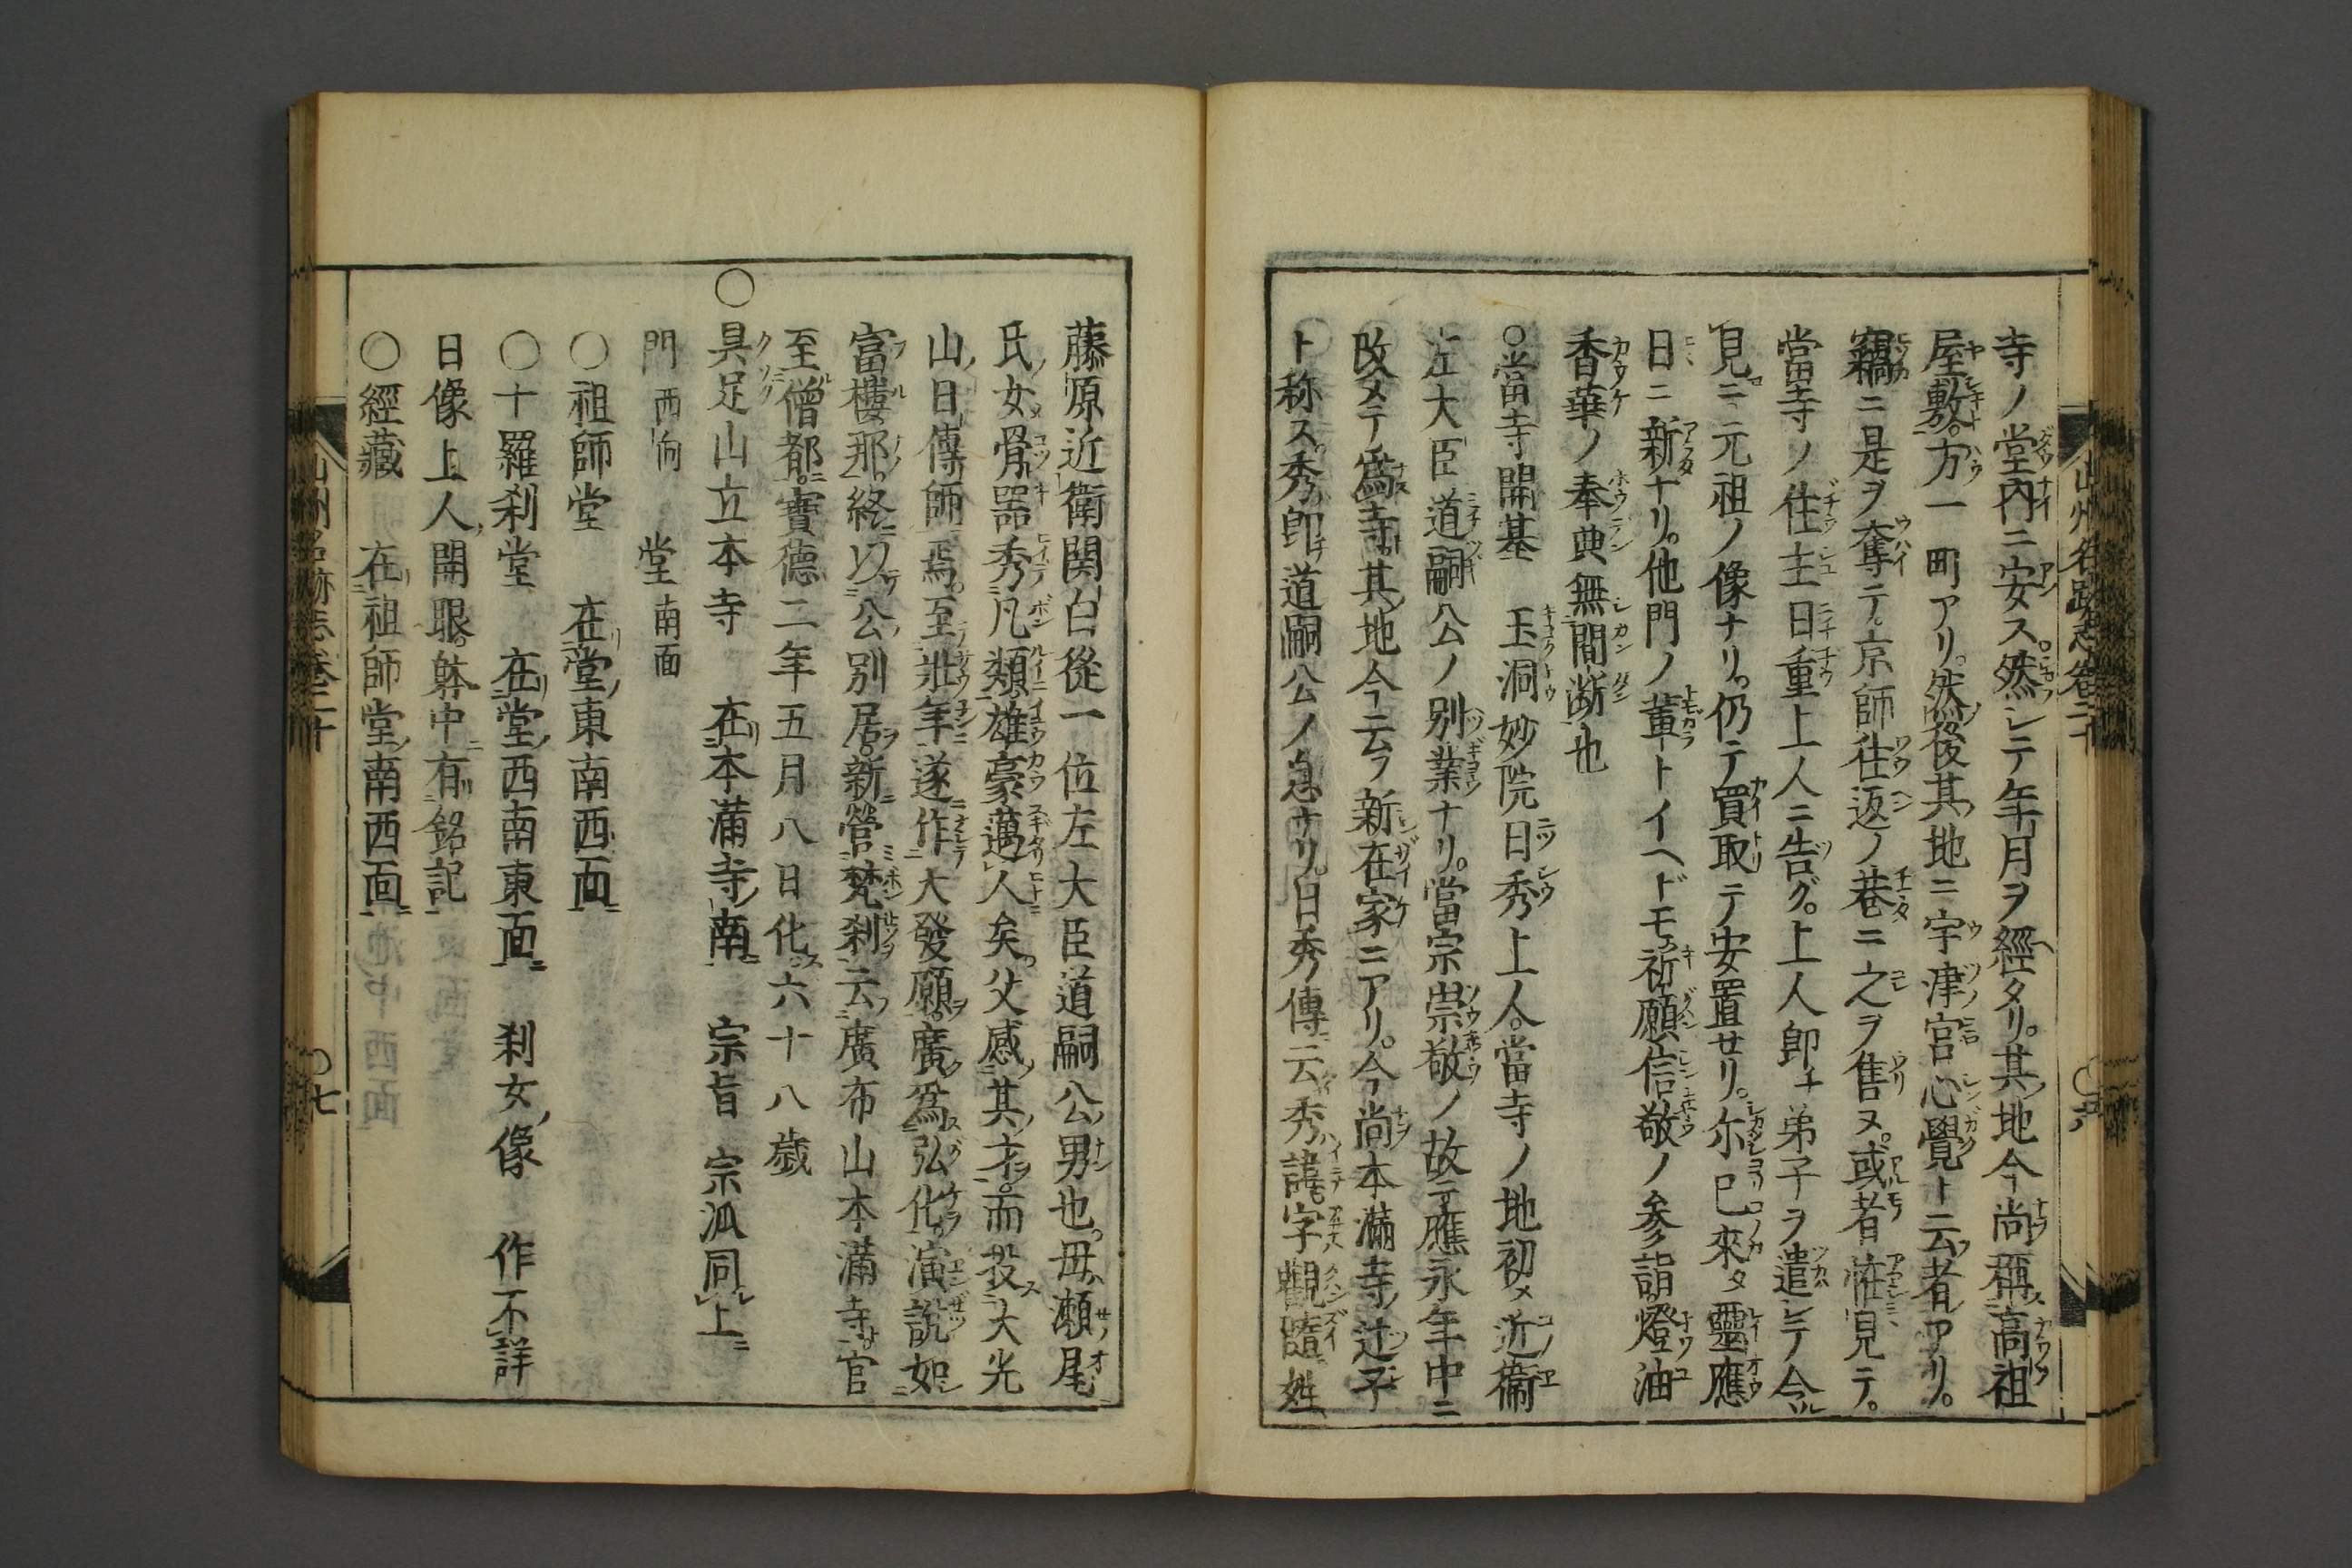 寺ノ堂内ニ安ス。然シテ年月ヲ經タリ。其地今尚稱高祖
屋敷。方一町アリ。然後其地ニ宇津宮心覺ト云者アリ。
竊ニ是ヲ奪テ。京師往返ノ巷ニ之ヲ售ヌ。或者恠見テ。
當寺ノ住主日重上人ニ告グ。上人即チ弟子ヲ遣シテ令
見ニ元祖ノ像ナリ。仍テ買取テ安置せリ。尓已來タ靈應
日ニ新ナリ。他門ノ輩トイヘドモ祈願信敬ノ參詣。燈油
香華ノ奉典無間断也
○當寺開基 玉洞妙院日秀上人。當寺ノ地初メ近衞
左大臣道嗣公ノ別業ナリ。當宗崇敬ノ故ニ應永年中ニ
改メテ爲寺。其地今云フ新在家ニアリ。今尚本滿寺ノ辻子
ト称ス。秀即道嗣公ノ息ナリ。日秀傳云秀諱。字觀隨姓
藤原近衛関白從一位左大臣道嗣公男也。毋瀬尾
氏女骨噐秀凡類。雄豪邁人矣。父感其才。而投大光
山日傳師焉。至壯年遂作大發願。廣爲弘化。演説如
富樓那。終以公別居。新營梵刹。云廣布山本滿寺。官
至僧都。寶德二年五月八日化。六十八歳
○具足山立本寺 在本滿寺南 宗旨 宗派同上
門西向 堂南面
○祖師堂 在堂東南西面
○十羅刹堂 在堂西南東面 刹女像 作不詳
日像上人開眼。躰中有銘記
○經藏 在祖師堂南西面
山州名跡志卷二十 ○六
山州名跡志卷二十 ○七